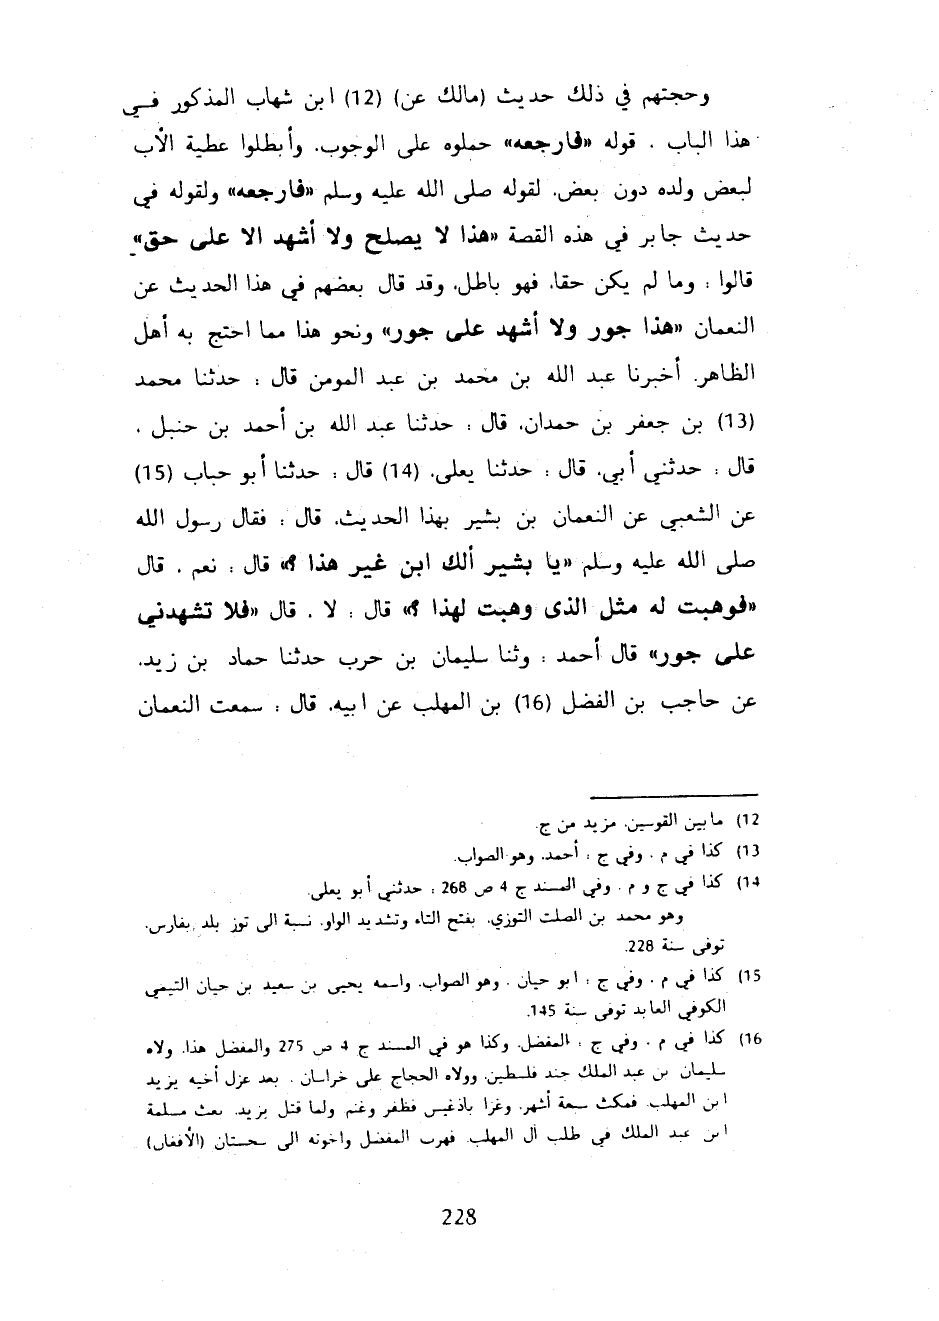 وحجتهم في ذلك حديث (مالك عن) (12) ابن شهاب المذكور فـي
هذا الباب . قوله «فارجعه» حملوه على الوجوب، وأبطلوا عطية الأب
لبعض ولده دون بعض، لقوله صلى الله عليه وسلم «فارجعه» ولقوله في
حديث جابر في هذه القصة «هذا لا يصلح ولا أشهد الا على حق»
قالوا : وما لم يكن حقا، فهو باطل، وقد قال بعضهم في هذا الحديث عن
النعمان «هذا جور ولا أشهد على جور» ونحو هذا مما احتج به أهل
الظاهر. أخبرنا عبد الله بن محمد بن عبد المومن قال : حدثنا محمد
(13) بن جعفر بن حمدان، قال : حدثنا عبد الله بن أحمد بن حنبل .
قال : حدثني أبي، قال : حدثنا يعلى، (14) قال : حدثنا أبو حباب (15)
عن الشعبي عن النعمان بن بشير بهذا الحديث، قال : فقال رسول الله
صلى الله عليه وسلم «يا بشير ألك ابن غير هذا ؟» قال : نعم . قال
«فوهبت له مثل الذى وهبت لهذا ؟» قال : لا . قال «فلا تشهدني
على جور» قال أحمد : وثنا سليمان بن حرب حدثنا حماد بن زيد،
عن حاجب بن الفضل (16) بن المهلب عن ابيه، قال : سمعت النعمان
12) ما بين القوسين، مزيد من ج.
13) كذا في م . وفي ج : أحمد، وهو الصواب.
14) كذا في ج و م . وفي المسند ج 4 ص 268 : حدثني أبو يعلى.
وهو محمد بن الصلت التوزي، بفتح التاء وتشديد الواو، نسبة الى توز بلد بفارس.
توفى سنة 228.
15) كذا في م . وفي ج : ابو حيان . وهو الصواب، واسمه يحيى بن سعيد بن حيان التيمي
الكوفي العابد توفى سنة 145.
16) كذا في م . وفي ج : المفضل، وكذا هو في المسند ج 4 ص 275 والمفضل هذا، ولاه
سليمان بن عبد الملك جند فلسطين، وولاه الحجاج على خراسان . بعد عزل أخيه يزيد
ابن المهلب، فمكث سبعة أشهر، وغزا باذغيس فظفر وغنم ولما قتل يزيد، بعث مسلمة
ابن عبد الملك في طلب آل المهلب، فهرب المفضل واخوته الى سجستان (الأفغان)
228